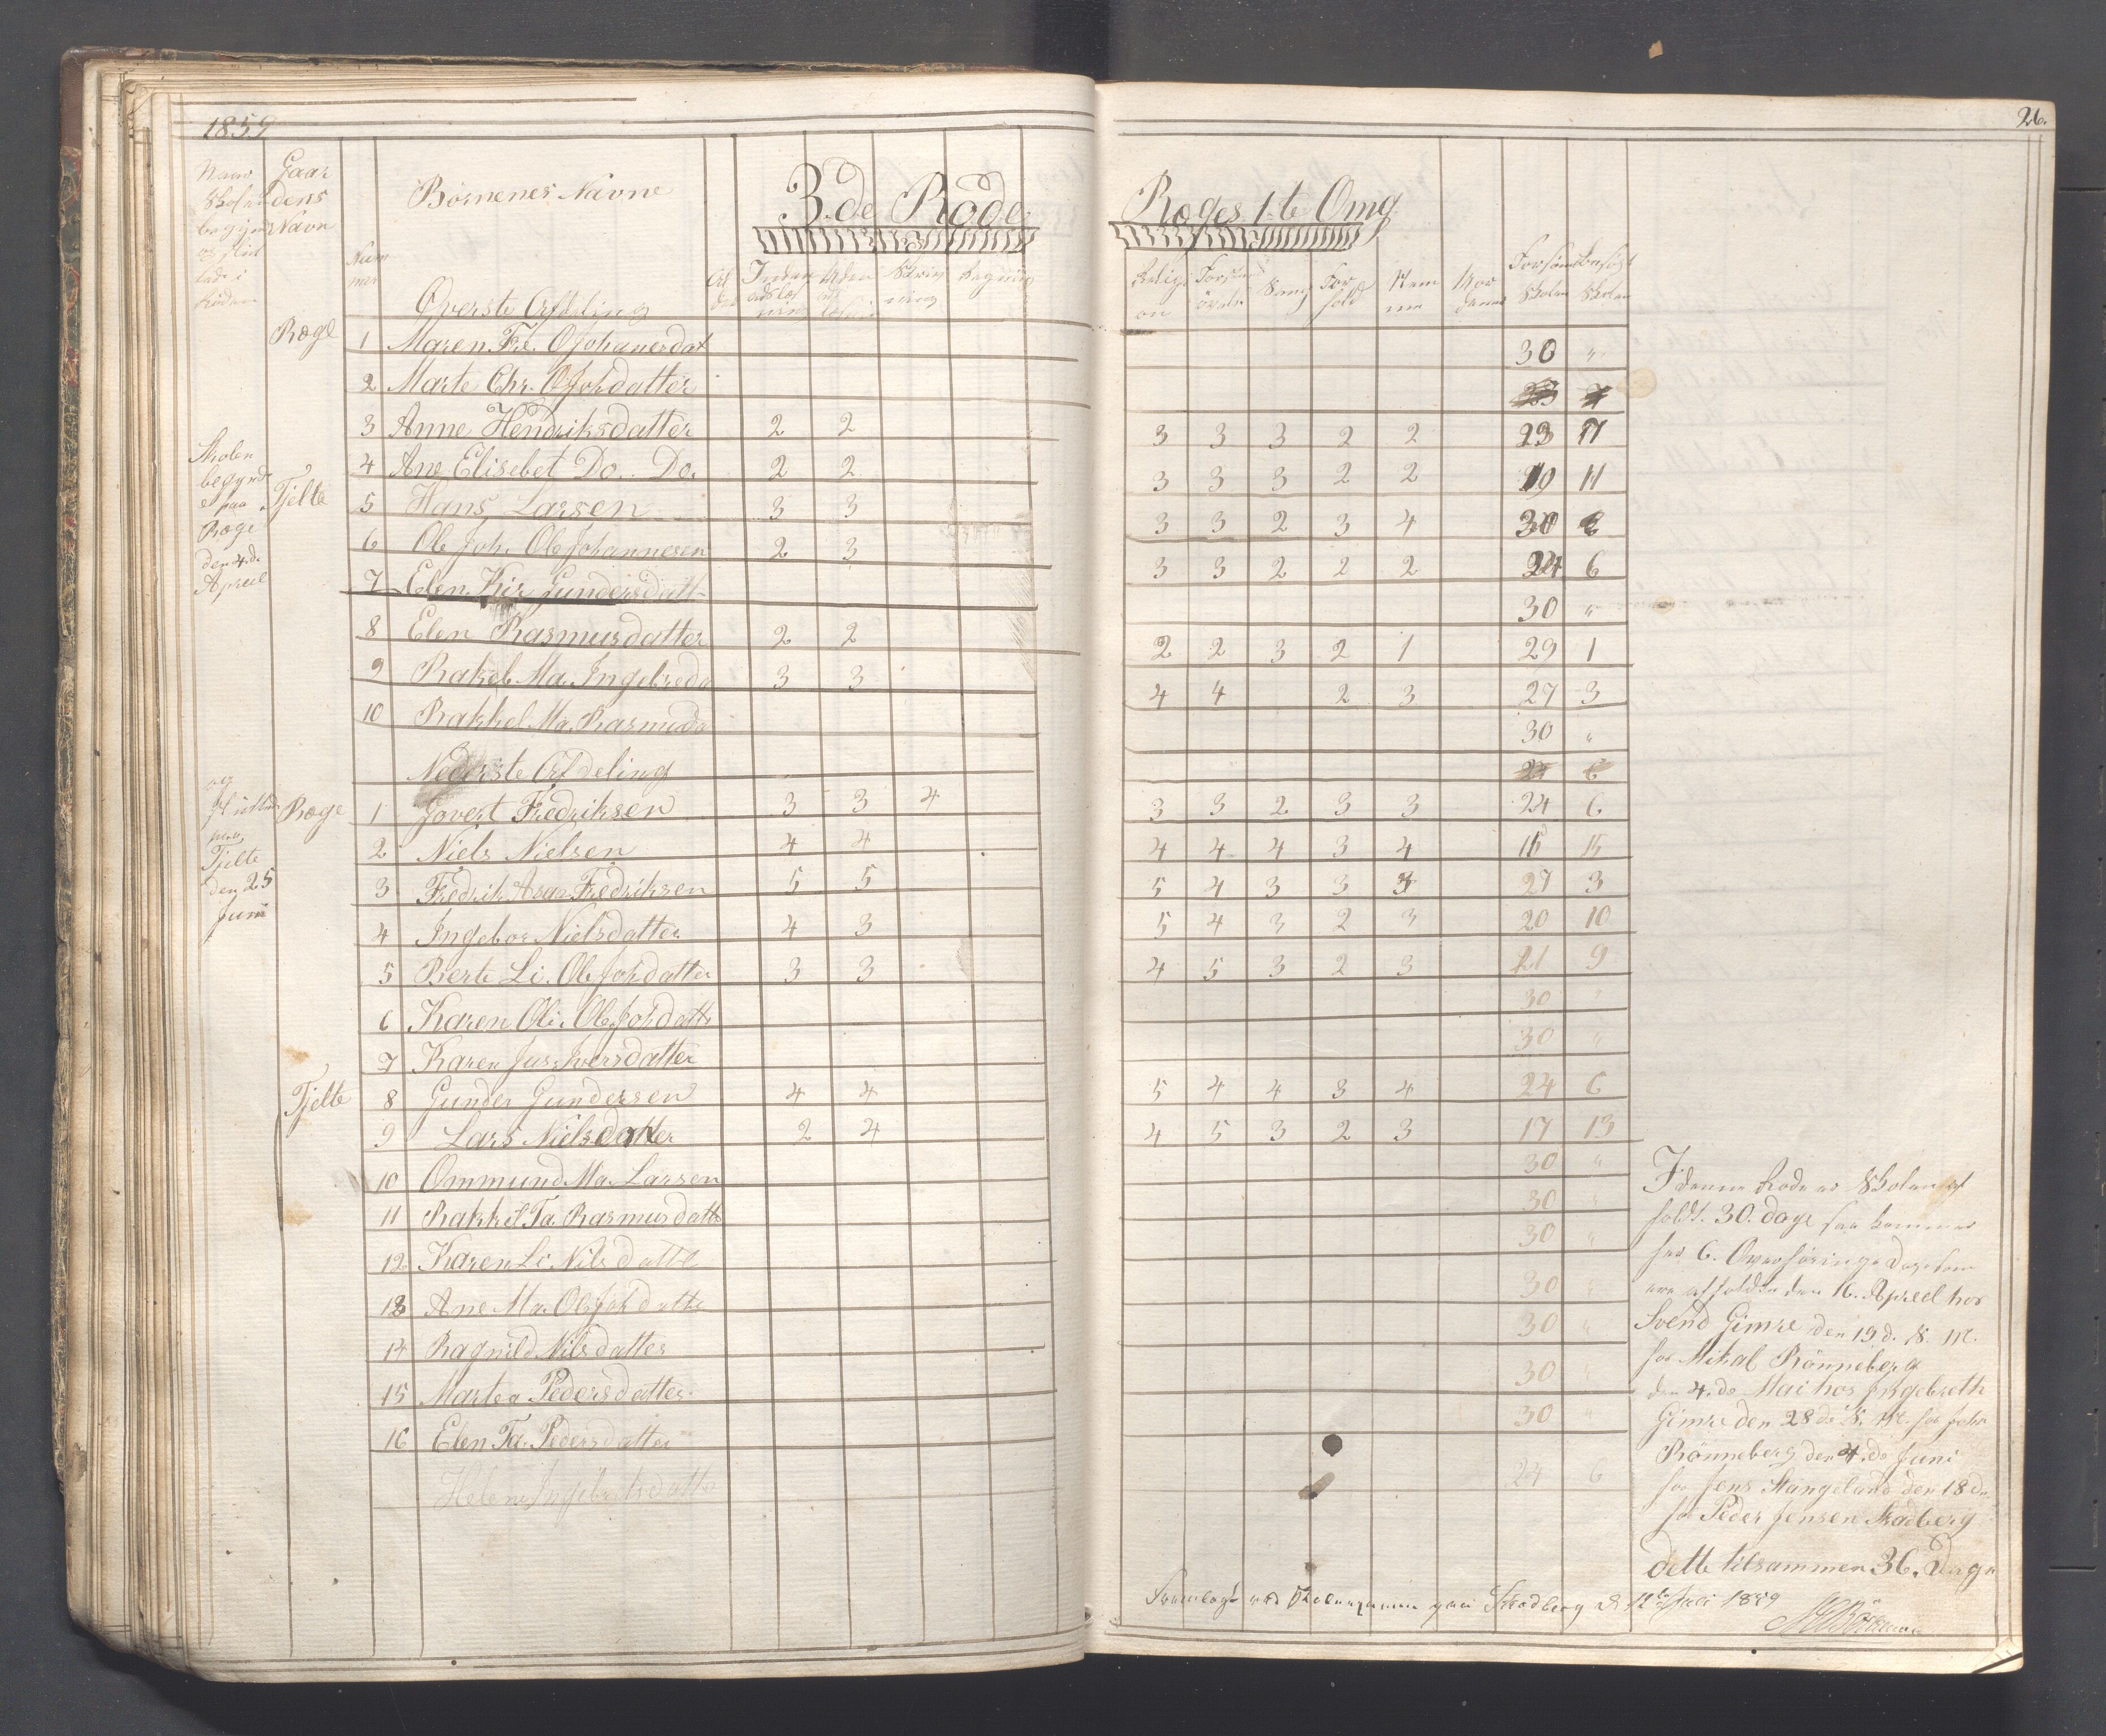 1859
26.
Naar Skolen begynd og slut tede i Roden
Gaar dens Navn
Num mer
Børnenes Navne
3.de Rode.
Røges 1.te Omg.
Øverste Afdeling
Al der
Inden adslæs ning
Uden ads læs
Skriv ning
Regning
Religi on
Forstan øvels
Sang
For hold
Nem me
Mor
Forsømt Skolen
besøgt Skolen
Røge 1 Maren Fre. O Johanesdat 30 "
2 Marte Chr. O Johdatter
3 Anne Hendriksdatter 2 2 3 3 3 2 2 23 7
Skolen begynd et paa Røge den 4.de Apriel
4 Ane Elisebet Do. Do. 2 2 3 3 3 2 2 19 11
Tjelte 5 Hans Larsen 3 3 3 3 2 3 4 30
6 Ole Joh. Ole Johannesen 2 3 3 3 2 2 2 24 6
7 Elen Kir Gundersdatt 30 "
8 Elen Rasmusdatter 2 2 2 2 3 2 1 29 1
9 Rakel Ma. Ingebreda 3 3 4 4 2 3 27 3
10 Rakkel Ma. Rasmusda 30 "
Nederste Afdeling
og sluttede paa Tjelte den 25 Juni
Røge 1 Govert Fredriksen 3 3 4 3 3 2 3 3 24 6
2 Niels Nielsen 4 4 4 4 4 3 4 15 15
3 Fredrik Asar Fredriksen 5 5 5 4 3 3 3 27 3
4 Ingebor Nielsdatter 4 3 5 4 3 2 3 20 10
5 Berte Li. Ole Johdatter 3 3 4 5 3 2 3 21 9
6 Karen Oli. Ole Johdatt 30 "
7 Karen Jus. Iversdatter 30 "
Tjelte 8 Gunder Gundersen 4 4 5 4 4 3 4 24 6
9 Lars Nielsdatter 2 4 4 5 3 2 3 17 13
10 Ommund Ma. Larsen 30 "
11 Rakkel Ta. Rasmusdatt 30 "
12 Karen Li Nilsdatte 30 "
13 Ane Ma. Ole Johdatte 30 "
14 Ragnild Nilsdatter 30 "
15 Martea Pedersdatter 30 "
16 Elen Ta. Pedersdatter 30 "
Helene Ingebretsdatte 24 6
I denne Rode er Skolen af
holdt. 30. dage saa kommer
her 6. Overhørings Dage som
ere afholdte den 16. Apreel hos
Svend Gimre den 19 d. S. M.
hos Mikal Rønneberg
den 4.de Mai hos Ingebreth
Gimre den 28de S. M. hos John
Rønneberg den 4.de Juni
hos Jens Stangeland den 18 de
hos Peder Jensen Skadberg
dette tilsammen 36. Dage
Fremlagt ved Skoleexamen paa Skadberg d. 12te Juli 1859